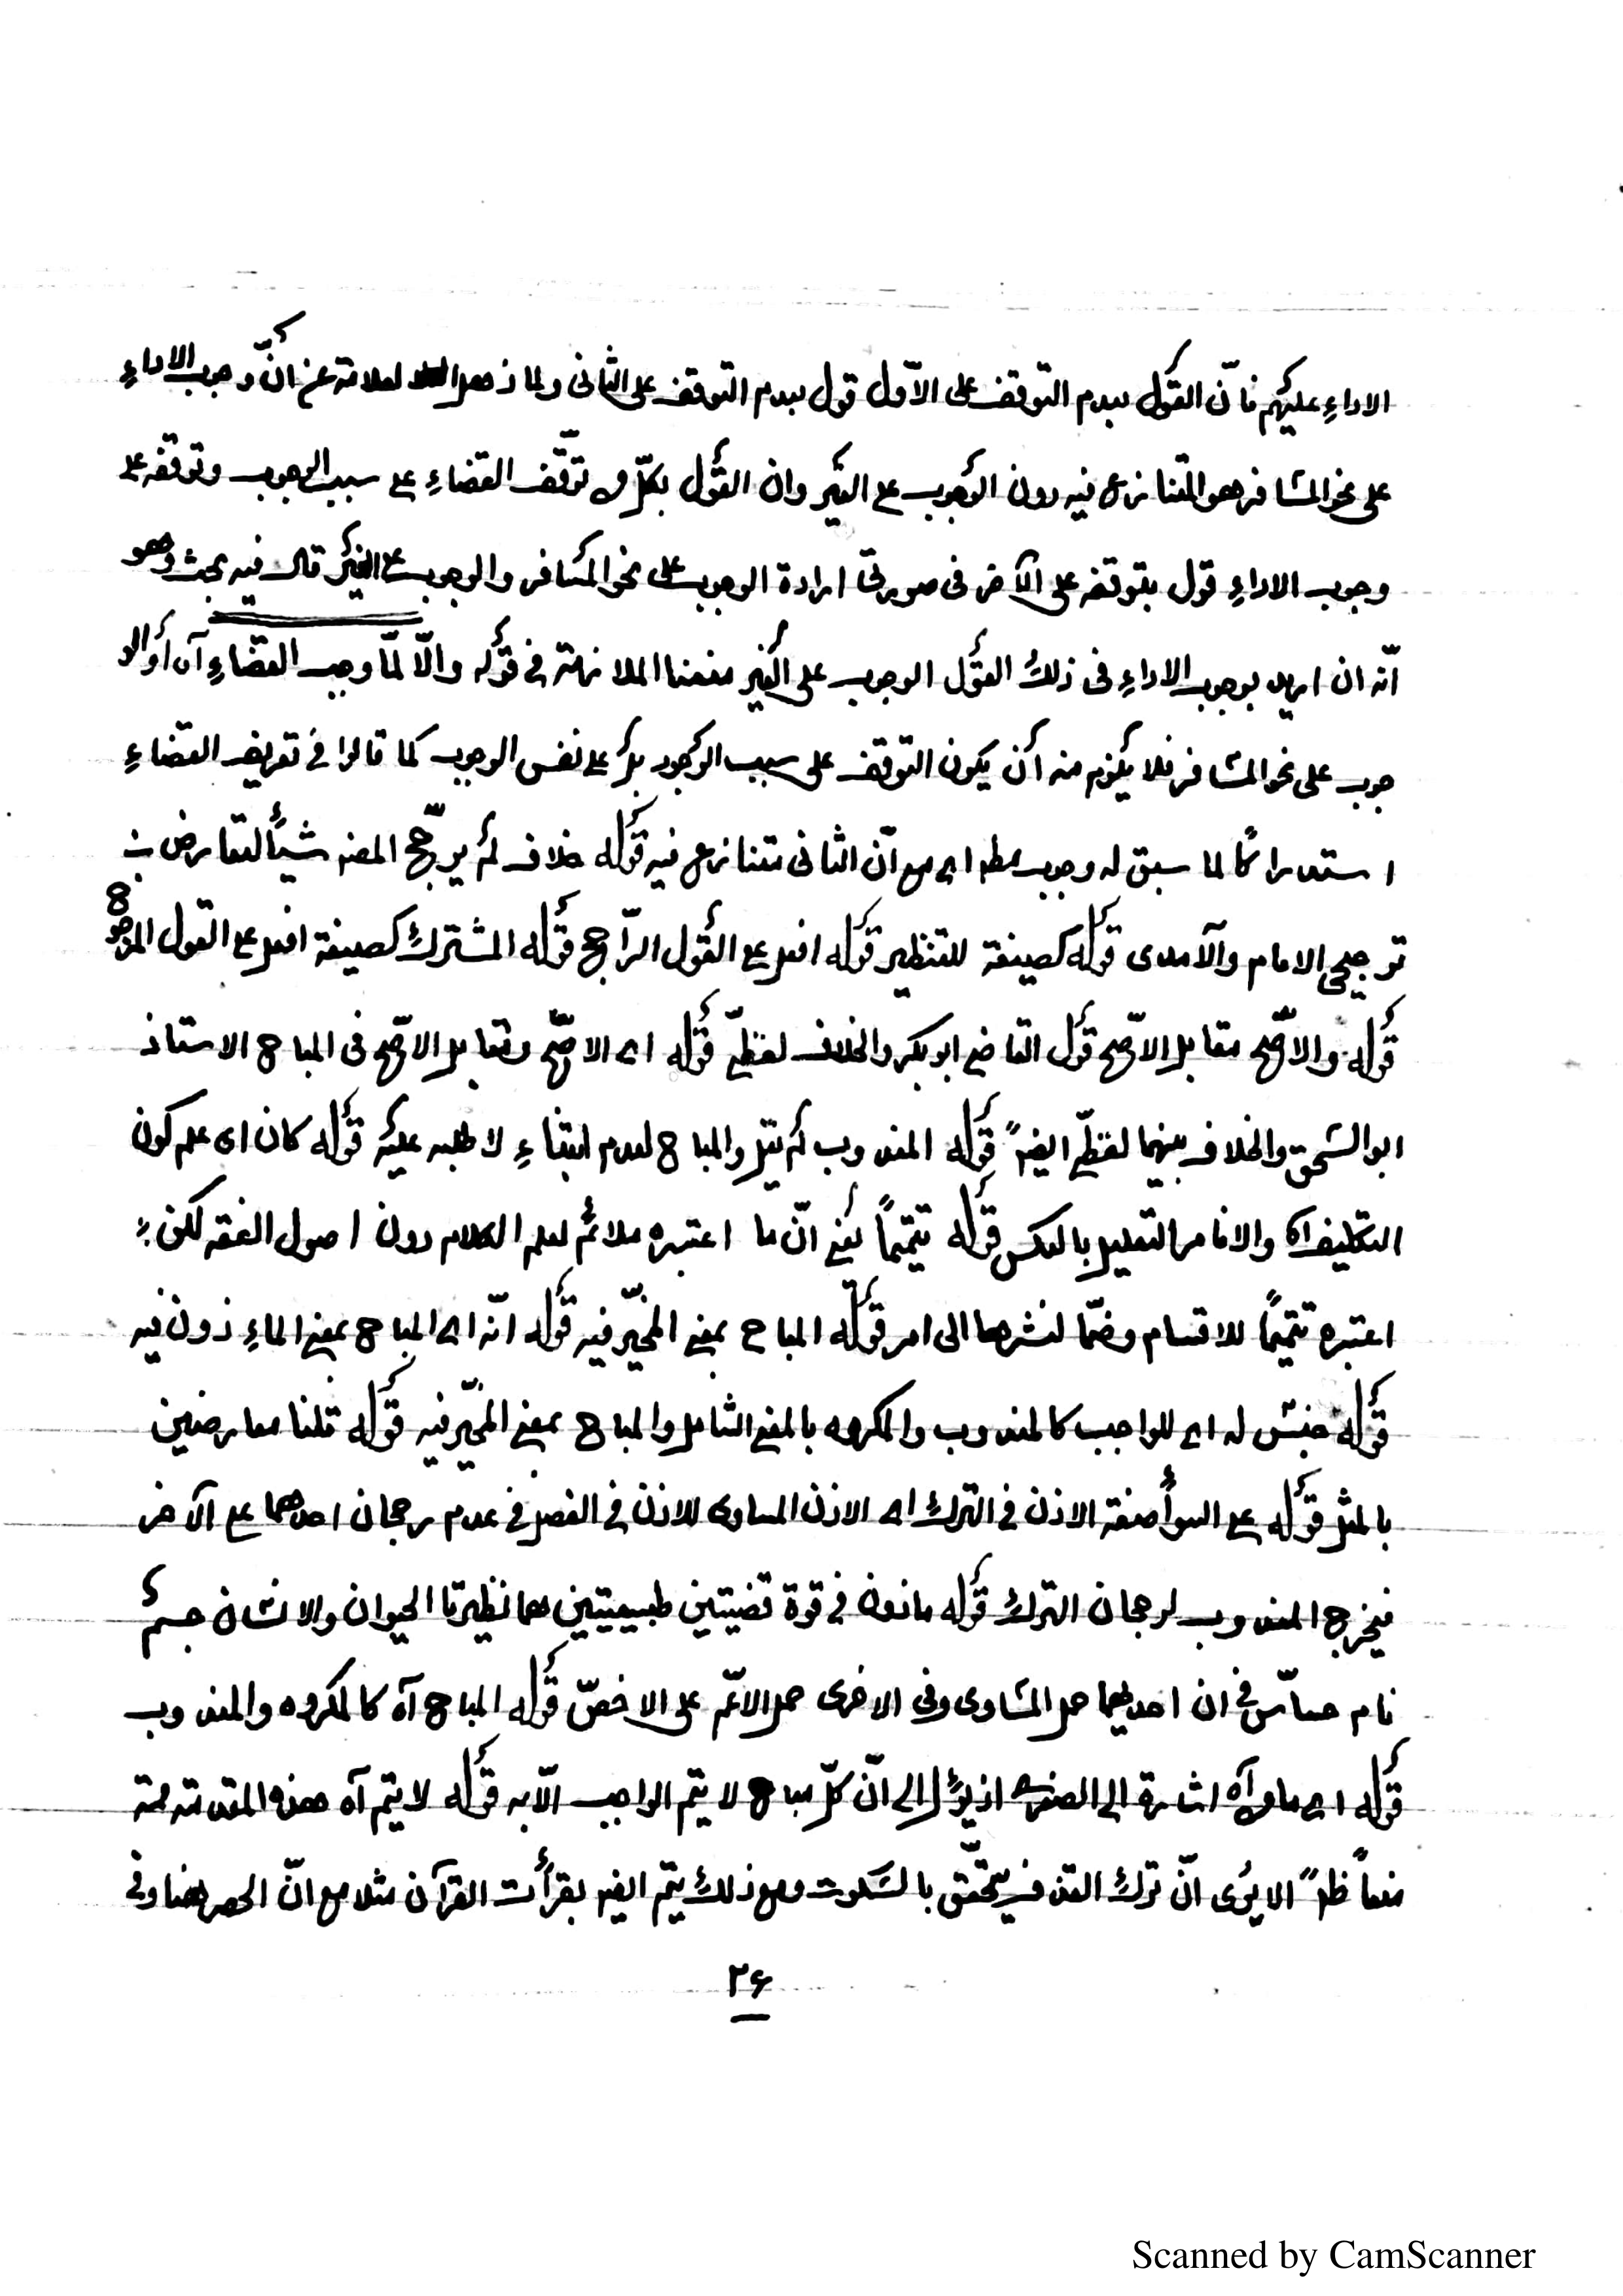 الاداءِ عليهم فانّ القول بعدم التوقف على الاوّل قول بعدم التوقف على الثانى ولما ذهل العلامة عن انّ وجوب الاداءِ
على نحو المسافر هو المتنازع فيه دون الوجوب على الغير وان القول بكلّ من توقّف القضاءِ على سبب الوجوب وتوقفه على
وجوب الاداءِ قول بتوقفه على الآخر فى صورتى ارادة الوجوب على نحو المسافر والوجوب على الغير قال فيه بحث وهو
انّه ان اريد بوجوب الاداءِ فى ذلك القول الوجوب على الغير منعنا الملازمة فى قوله والّا لمّا وجب القضاءِ آه أو الو
جوب على نحو المسافر فلا يلزم منه أن يكون التوقف على سبب الوجود بل على نفس الوجوب كما قالوا فى تعريف القضاءِ
استدراكًا لما سبق له وجوب مطا اى مع انّ الثانى متنازع فيه قوله خلاف لم يرجّح المص شيأً لتعارض
ترجيحى الامام والآمدى قوله كصيغة للتنظير قوله افعل على القول الرّاجح قوله المشترك كصيغة افعل على القول المرجوح
قوله والاصّح مقابل الاصّح قول القاضى ابو بكر والخلاف لفظىّ قوله اى الاصّح ومقابل الاصّح فى المباح الاستاذ
ابو اسحق والخلاف بينهما لفظىّ ايضً قوله المندوب لم يقل والمباح لعدم ابتناءِ لا طلبه عليه قوله كان اى علم كون
التكليف آه والا فامر التعليل بالعكس قوله تتميماً يعنى انّ ما اعتبره ملائم لعلم الكلام دون اصول الفقه لكن
اعتبره تتميماً للاقسام وضمّا لنشرها الى امر قوله المباح بمعنى المخيّر فيه قوله انّه اى المباح بمعنى الماءِ ذون فيه
قوله جنس له اى للواجب كالمندوب والمكروه بالمعنى الشامل والمباح بمعنى المخيّر فيه قوله قلنا معارضين
بالمثل قوله على السوأ صفة الاذن فى الترك اى الاذن المساوى للاذن فى الفصل فى عدم رجحان احدهما على الآخر
فيخرج المندوب لرجحان الترك قوله مانعه فى قوة قضيتين طبيعيتين هما نظيرتا الحيوان والانسان جسم
نام حساّس فى ان احديهما حمل المساوى وفى الاخرى حمل الاعّم على الاخصّ قوله المباح آه كالمكروه والمندوب
قوله اى ما وآه اشارة الى الصغرى اذ يؤل الى انّ كلّ مباح لا يتم الواجب الّا به قوله لا يتم آه هذه المقدمة ممنوعة
منعاً ظ الا يرى انّ ترك القذف يتحقّق بالسكوت ومع ذلك يتم ايضً بقرأت القرآن مثلا مع انّ الحصر هنا وفى
٢۶
Scanned by CamScanner